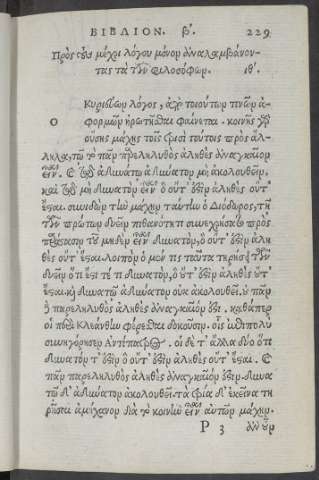 ΒΙΒΛΙΟΝ. β´. 229
Πρὸς τοὺς μέχρι λόγου μόνον ἀναλαμβάνον-
τας τὰ τῶν φιλοσόφων. ιθ´.
Ο Κυριεύων λόγος, ἀπὸ τοιούτων τινῶν ἀ-
φορμῶν ἠρωτῆσθαι φαίνεται. κοινῆς γὰρ
οὔσης μάχης τοῖς τρισὶ τούτοις πρὸς ἄλ-
ληλα, τῶ τὸ πᾶν παρεληλυθὸς ἀληθὲς ἀναγκαῖον
εἶναι. καὶ τῶ ἀδυνάτω δυνατὸν μὴ ἀκολουθεῖν.
καὶ τῶ μὴ δυνατὸν εἶναι ὃ οὔτ' ἔστιν ἀληθὲς οὔτ'
ἔσται. συνιδὼν τὴν μάχην ταύτην ὁ Διόδωρος, τῆ
τῶν πρώτων δυεῖν πιθανότητι συνεχρήσατο πρὸς
παράστασιν τοῦ μηδὲν εἶναι δυνατὸν, ὃ οὔτ' ἔστιν ἀλη
θὲς οὔτ' ἔσται. λοιπὸν ὁ μέν τις ταῦτα τηρήσει τῶν
δυεῖν ὅτι ἔστι τέ τι δυνατὸν, ὃ οὔτ' ἔστιν ἀληθὲς οὔτ'
ἔσται. καὶ δυνατῶ ἀδύνατον οὐκ ἀκολουθεῖ. οὐ πᾶν
δὲ παρεληλυθὸς ἀληθὲς ἀναγκαῖόν ἐστι. καθάπερ
οἱ περὶ Κλεάνθην φέρεσθαι δοκοῦσιν. οἷς ἐπιπολὺ
συνηγόρησεν Ἀντίπατρος. οἱ δέ τ' ἄλλα δύο ὅτι
δυνατόν τ' ἐστὶν ὃ οὔτ' ἔστιν ἀληθὲς οὔτ' ἔσται. καὶ
πᾶν παρεληλυθὸς ἀληθὲς ἀναγκαῖόν ἐστιν. δυνα
τῶ δ' ἀδύνατον ἀκολουθεῖ. τὰ τρία δ' ἐκεῖνα τη
ρῆσαι ἀμήχανον διὰ τὸ κοινὴν εἶναι αὐτῶν μάχην.
P 3 ἂν οὖν